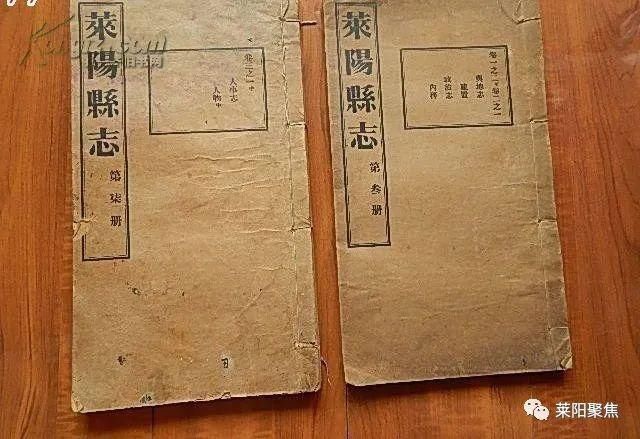 萊陽縣志
第柒册
卷三之一中
人事志
人物中
萊陽縣志
第叁册
卷一之二下卷二之一
輿地志
建置
政治志
內務
旧书网
莱阳聚焦